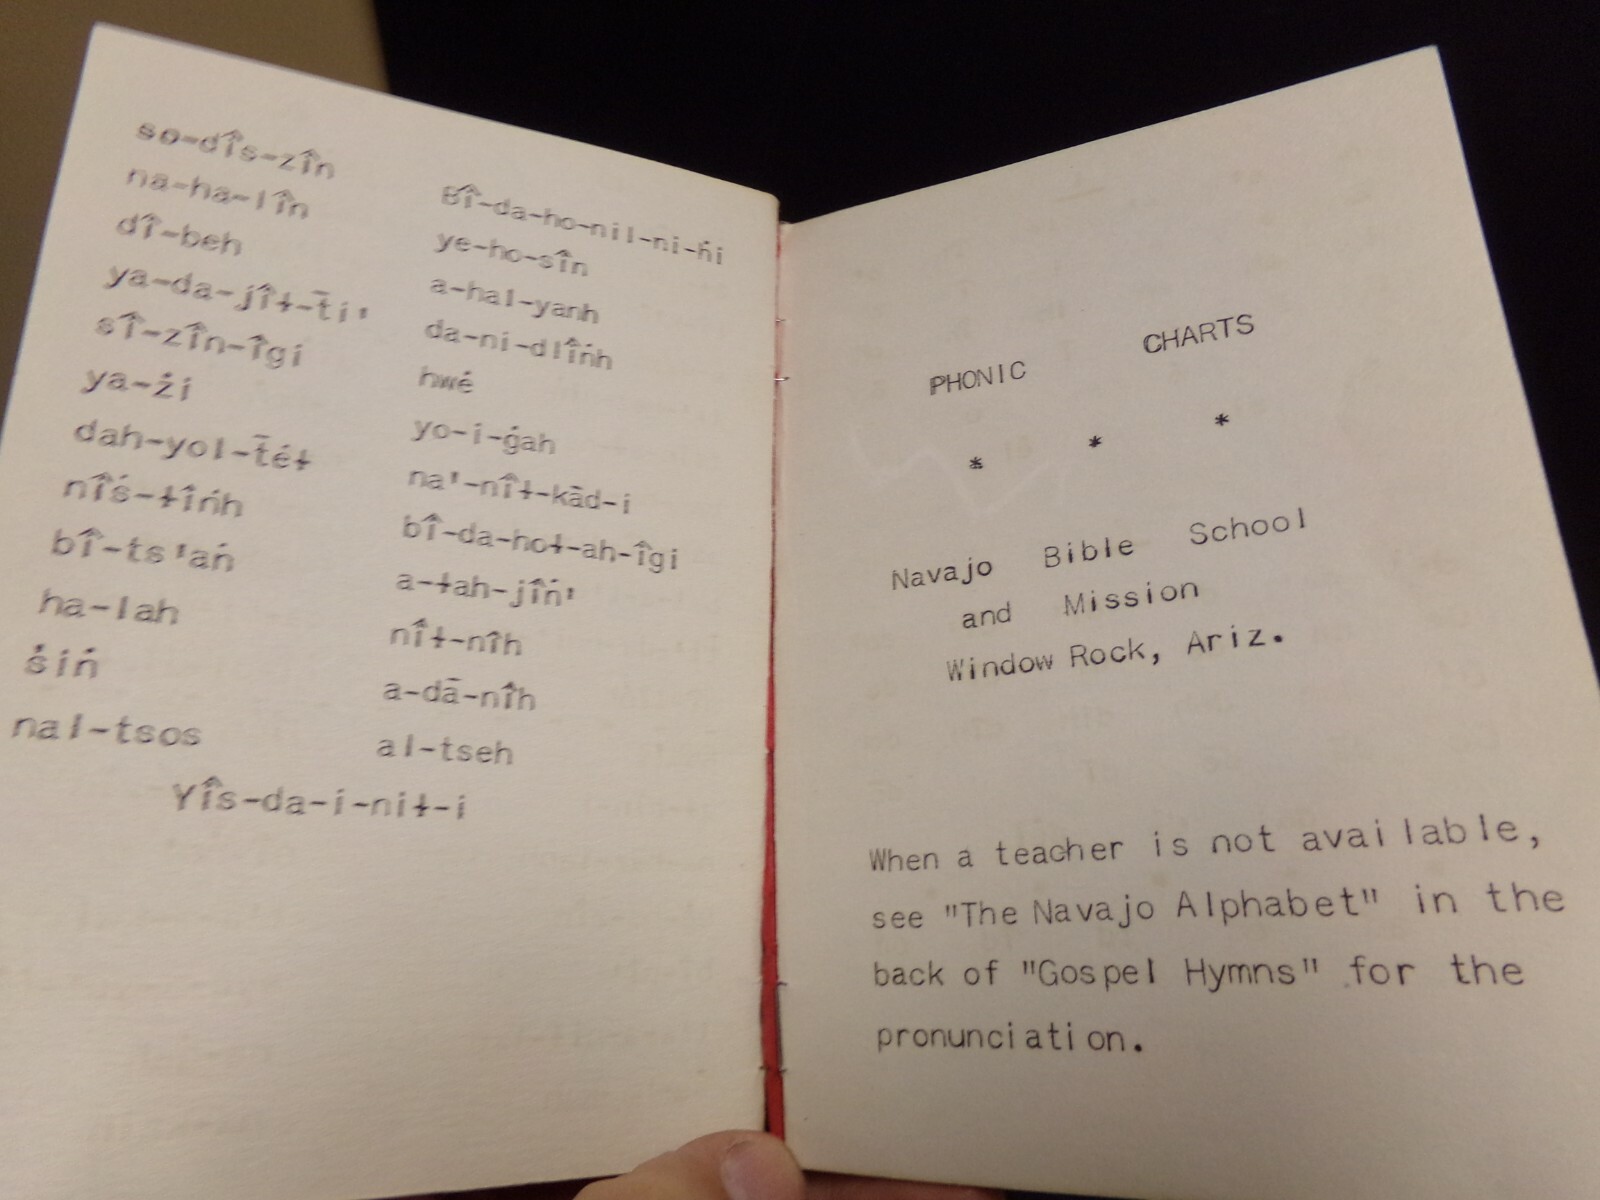 so-dîs-zîn
na-ha-lîn
dî-beh
ya-da-jîɫ-t̄i'
sî-zîn-îgi
ya-źi
dah-yol-t̄éɫ
nîś-ɫîńh
bî-ts'ań
ha-lah
śiń
nal-tsos
Bî-da-ho-nil-ni-h́i
ye-ho-sîn
a-hal-yanh
da-ni-dlîńh
hwé
yo-i-ǵah
na'-nîɫ-kād-i
bî-da-hoɫ-ah-îgi
a-ɫah-jîń'
nîɫ-nîh
a-dā-nîh
al-tseh
Yîs-da-i-niɫ-i
PHONIC CHARTS
* * *
Navajo Bible School
and Mission
Window Rock, Ariz.
When a teacher is not available,
see "The Navajo Alphabet" in the
back of "Gospel Hymns" for the
pronunciation.